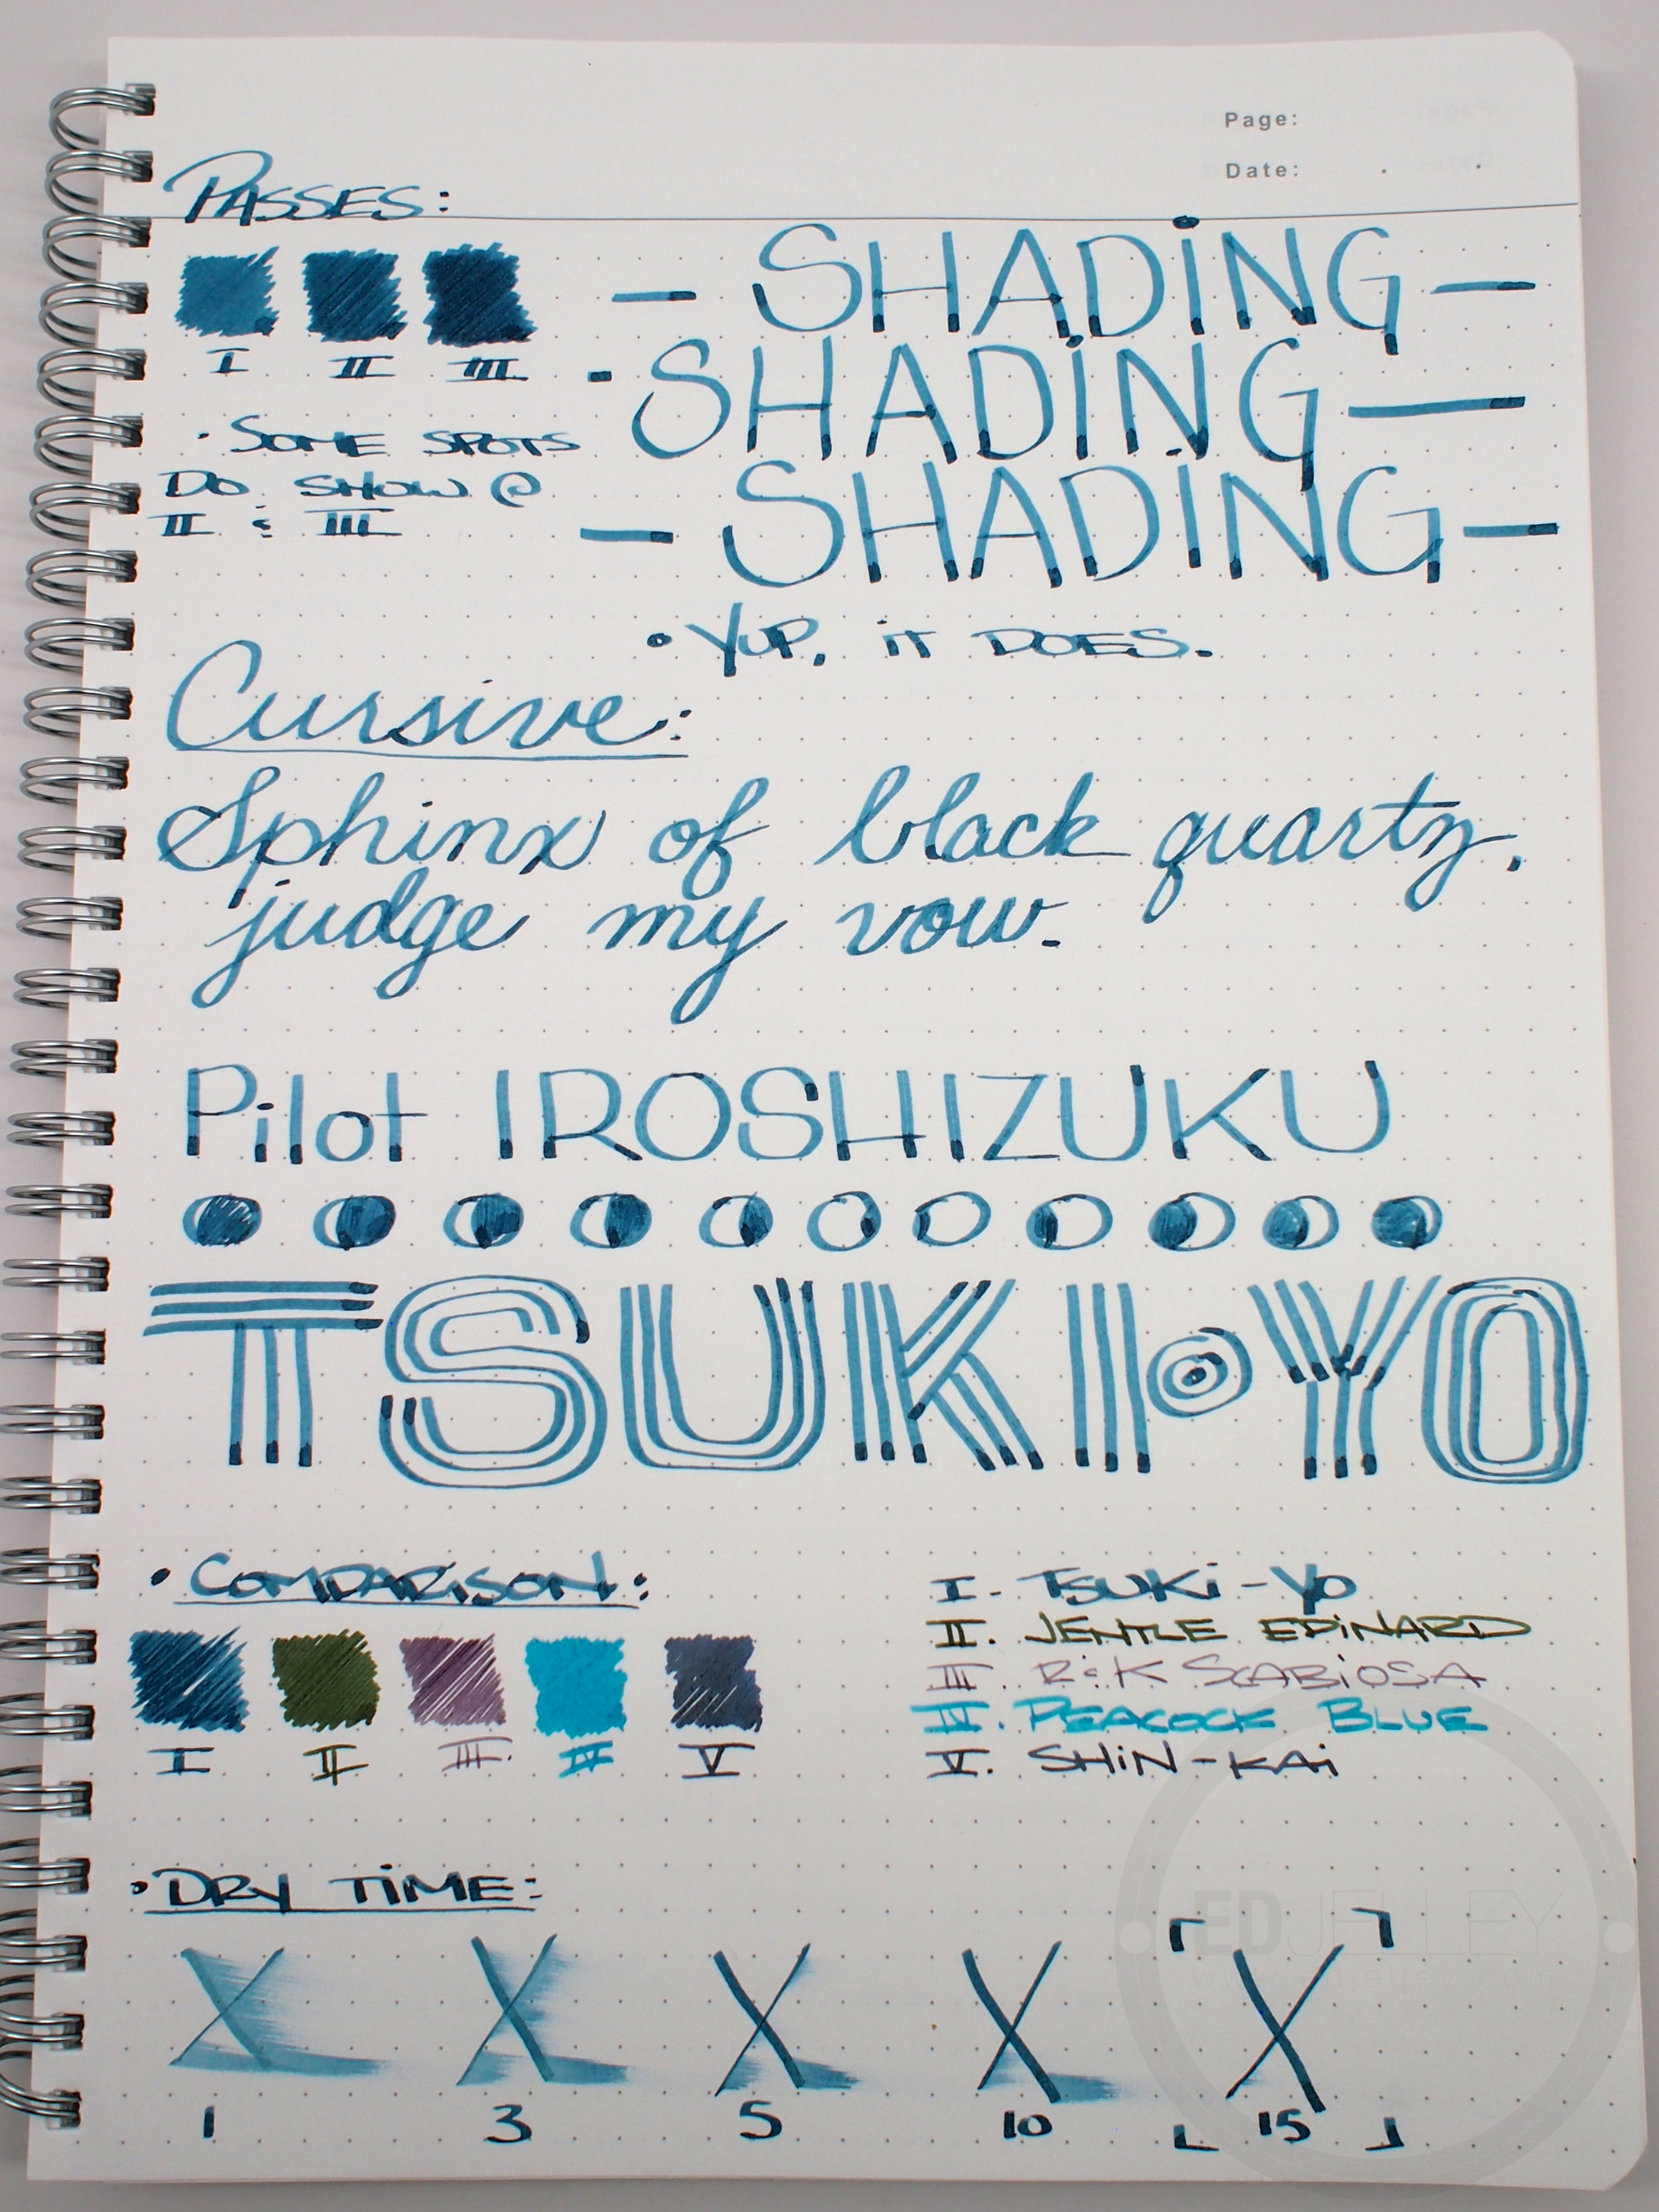 Page:
Date: . .
PASSES:
I II III
- SHADING -
- SHADING -
- SHADING -
· SOME SPOTS
DO SHOW @
II & III
· YUP, IT DOES.
Cursive:
Sphinx of black quartz,
judge my vow.
Pilot IROSHIZUKU
TSUKI-YO
· COMPARISON:
I II III. IV V
I. TSUKI-YO
II. JENTLE EPINARD
III. R&K SCABIOSA
IV. PEACOCK BLUE
V. SHIN-KAI
· DRY TIME:
X X X X X
1 3 5 10 15
EDJELLEY